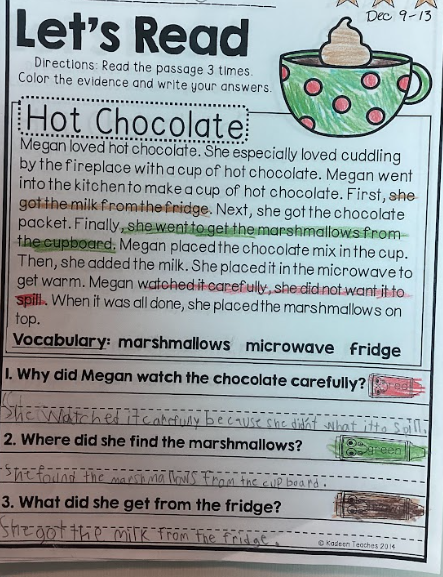 Dec 9-13
Let's Read
Directions: Read the passage 3 times.
Color the evidence and write your answers.
Hot Chocolate
Megan loved hot chocolate. She especially loved cuddling
by the fireplace with a cup of hot chocolate. Megan went
into the kitchen to make a cup of hot chocolate. First, she
got the milk from the fridge. Next, she got the chocolate
packet. Finally, she went to get the marshmallows from
the cupboard. Megan placed the chocolate mix in the cup.
Then, she added the milk. She placed it in the microwave to
get warm. Megan watched it carefully, she did not want it to
spill. When it was all done, she placed the marshmallows on
top.
Vocabulary: marshmallows microwave fridge
1. Why did Megan watch the chocolate carefully? red
She watched it carefully because she didnt what it to spill.
2. Where did she find the marshmallows? green
She found the marshmallows from the cupboard.
3. What did she get from the fridge?
She got the milk from the fridge.
© Kadeen Teaches 2014